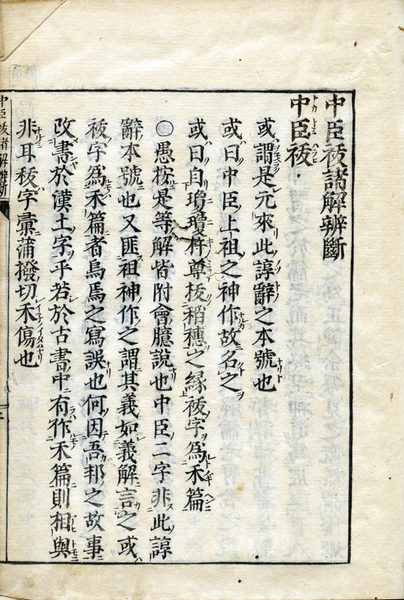 中臣祓諸解辨斷
中臣祓
或謂是元來此諄辭之本號也
或曰中臣上祖之神作故名之
或曰自瓊瓊杵尊抜稻穗之緣祓字爲禾篇
○愚按是等解皆附會臆說也中臣二字非此諄
辭本號也又匪祖神作之謂其義如義解言之或
祓字爲禾篇者烏焉之寫誤也何因吾邦之故事
改書於漢土字乎若於古書中有作禾篇則相與
非耳秡字彙蒲撥切禾傷也
中臣祓諸解辨斷